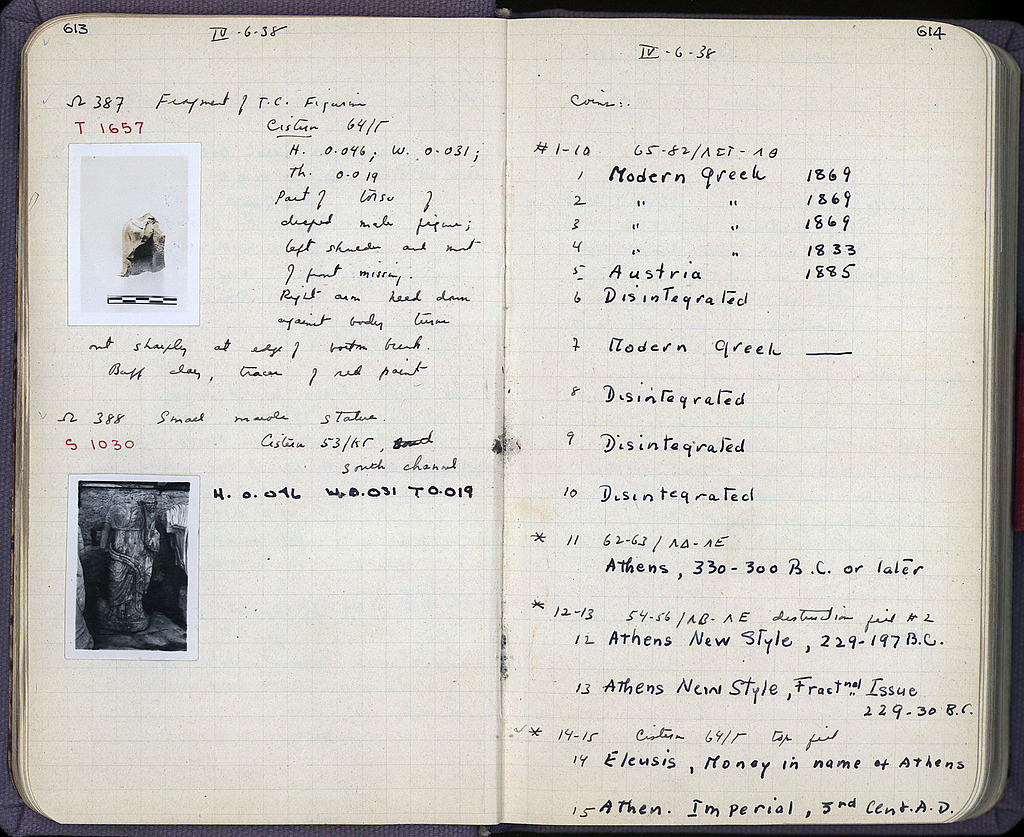 613
IV-6-38
Ω 387 Fragment of T.C. Figurine
T 1657
Cistern 64/Γ
H. 0.046; W. 0.031;
Th. 0.019
Part of torso of
draped male figure;
left shoulder and most
of front missing.
Right arm held down
against body turns
out sharply at edge of break.
Buff clay, traces of red paint
Ω 388 Small marble statue.
S 1030
Cistern 53/ΚΓ,
south channel
H. 0.046 W. 0.031 T 0.019
614
IV-6-38
Coins:.
#1-10 65-82/ΛΣΤ-ΛΘ
1 Modern Greek 1869
2 " " 1869
3 " " 1869
4 " " 1833
5 Austria 1885
6 Disintegrated
7 Modern Greek —
8 Disintegrated
9 Disintegrated
10 Disintegrated
* 11 62-63/ΛΔ-ΛΕ
Athens, 330-300 B.C. or later
* 12-13 54-56/ΛΒ-ΛΕ destruction fill #2
12 Athens New Style, 229-197 B.C.
13 Athens New Style, Fractnal Issue
229-30 B.C.
* 14-15 Cistern 64/Γ top fill
14 Eleusis, Money in name of Athens
15 Athen. Imperial, 3rd Cent. A.D.